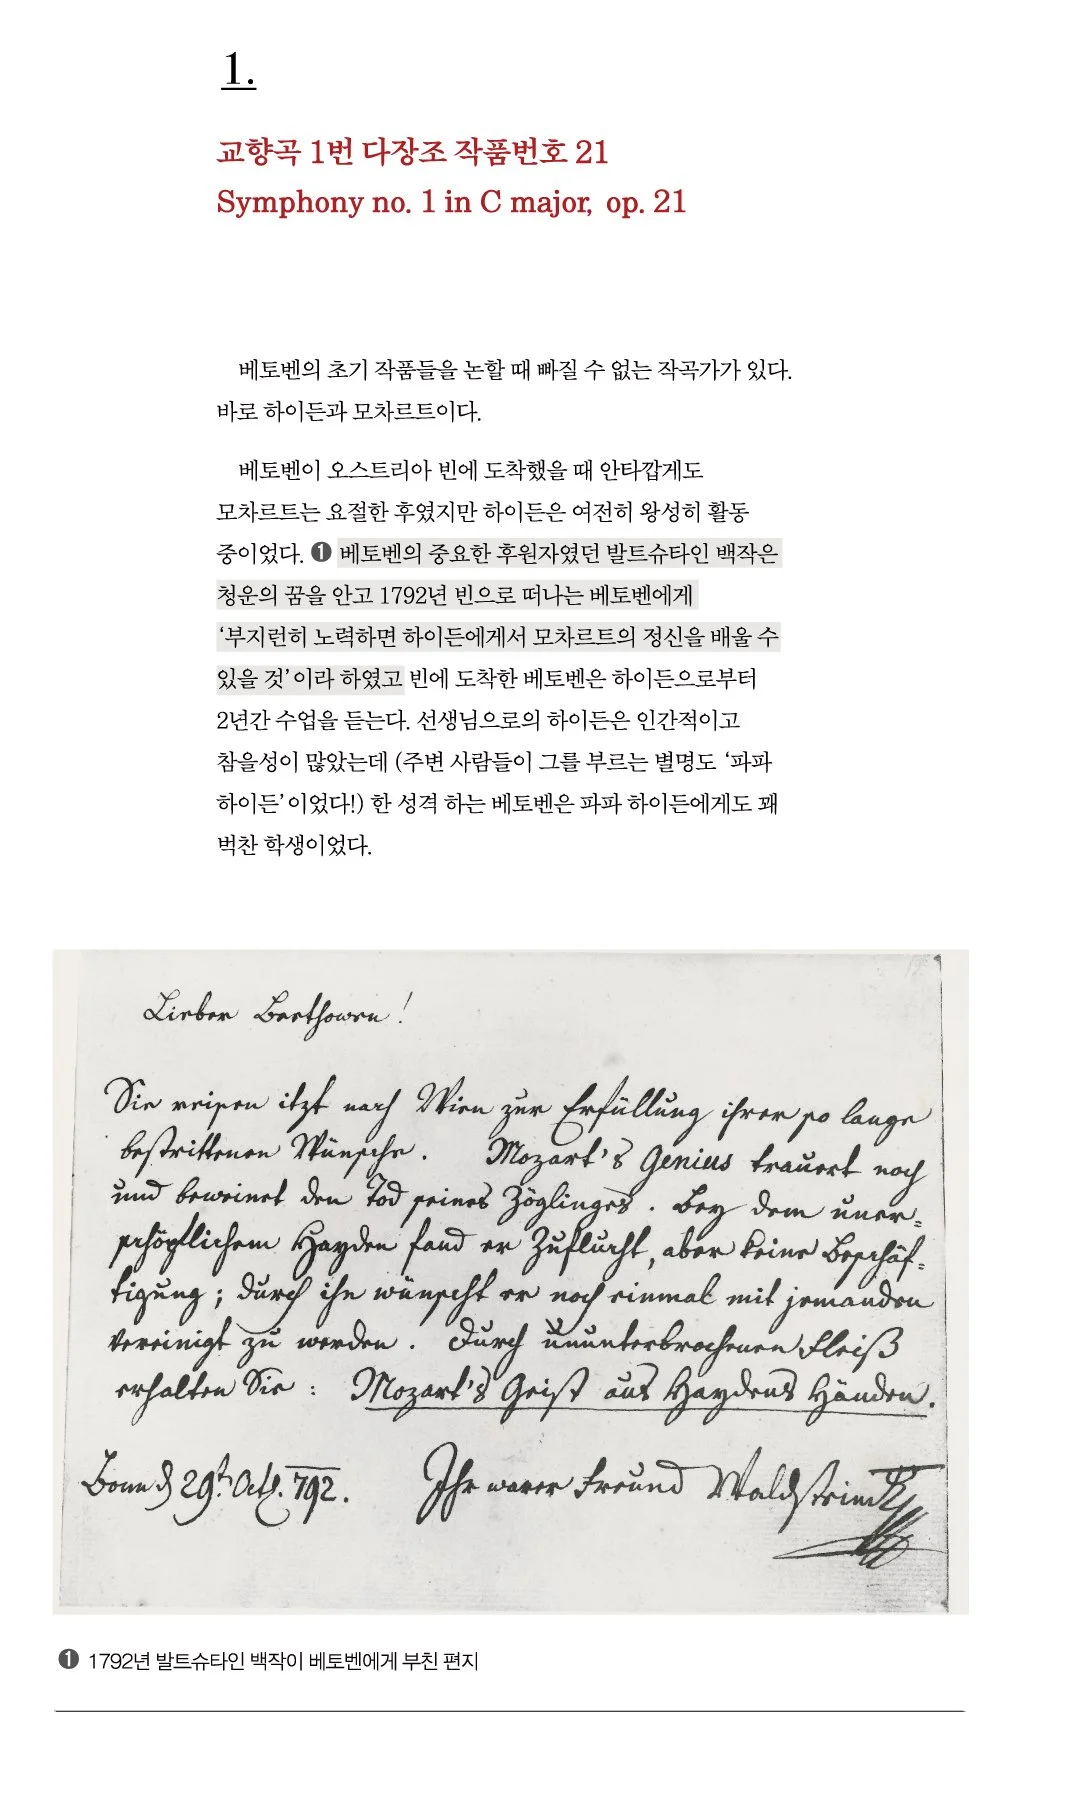 1.
교향곡 1번 다장조 작품번호 21
Symphony no. 1 in C major, op. 21
베토벤의 초기 작품들을 논할 때 빠질 수 없는 작곡가가 있다.
바로 하이든과 모차르트이다.
베토벤이 오스트리아 빈에 도착했을 때 안타깝게도
모차르트는 요절한 후였지만 하이든은 여전히 왕성히 활동
중이었다. ❶ 베토벤의 중요한 후원자였던 발트슈타인 백작은
청운의 꿈을 안고 1792년 빈으로 떠나는 베토벤에게
‘부지런히 노력하면 하이든에게서 모차르트의 정신을 배울 수
있을 것’이라 하였고 빈에 도착한 베토벤은 하이든으로부터
2년간 수업을 듣는다. 선생님으로의 하이든은 인간적이고
참을성이 많았는데 (주변 사람들이 그를 부르는 별명도 ‘파파
하이든’이었다!) 한 성격 하는 베토벤은 파파 하이든에게도 꽤
벅찬 학생이었다.
Lieber Beethowen!
Sie reisen itzt nach Wien zur Erfüllung ihrer so lange
bestrittenen Wünsche. Mozart's Genius trauert noch
und beweinet den Tod seines Zöglinges. Bey dem uner=
schöpflichem Hayden fand er Zuflucht, aber keine Beschäf=
tigung; durch ihn wünscht er noch einmal mit jemanden
vereinigt zu werden. Durch ununterbrochenen Fleiß
erhalten Sie: Mozart's Geist aus Haydens Händen.
Bonn d 29t. Oct. 792. Ihr warer Freund Waldstein
❶ 1792년 발트슈타인 백작이 베토벤에게 부친 편지